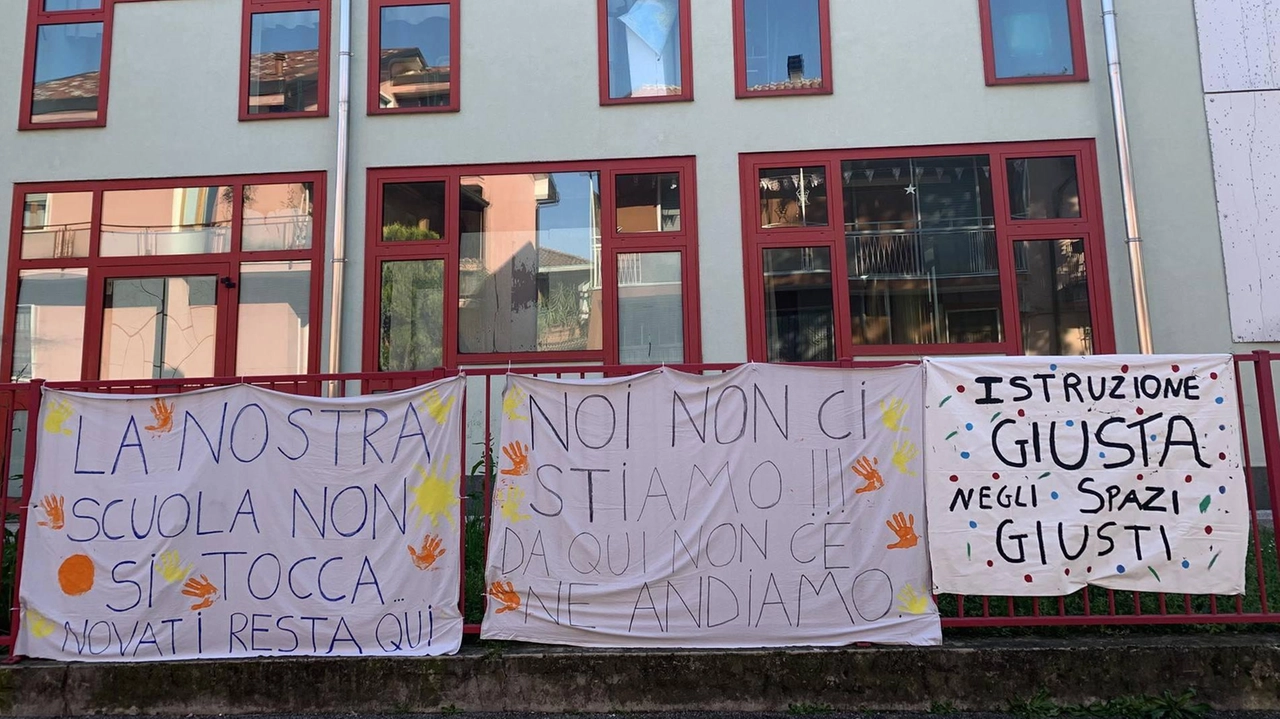 LA NOSTRA
SCUOLA NON
SI TOCCA...
NOVATI RESTA QUI
NOI NON CI
STIAMO!!!
DA QUI NON CE
NE ANDIAMO.
ISTRUZIONE
GIUSTA
NEGLI SPAZI
GIUSTI